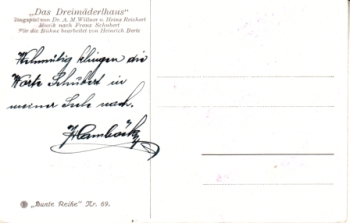 „Das Dreimäderlhaus"
Singspiel von Dr. A. M. Willner u. Heinz Reichert
Musik nach Franz Schubert
Für die Bühne bearbeitet von Heinrich Berté
Wehmütig klingen die
Worte Schubert in
meiner Seele nach.
„Bunte Reihe." Nr. 69.